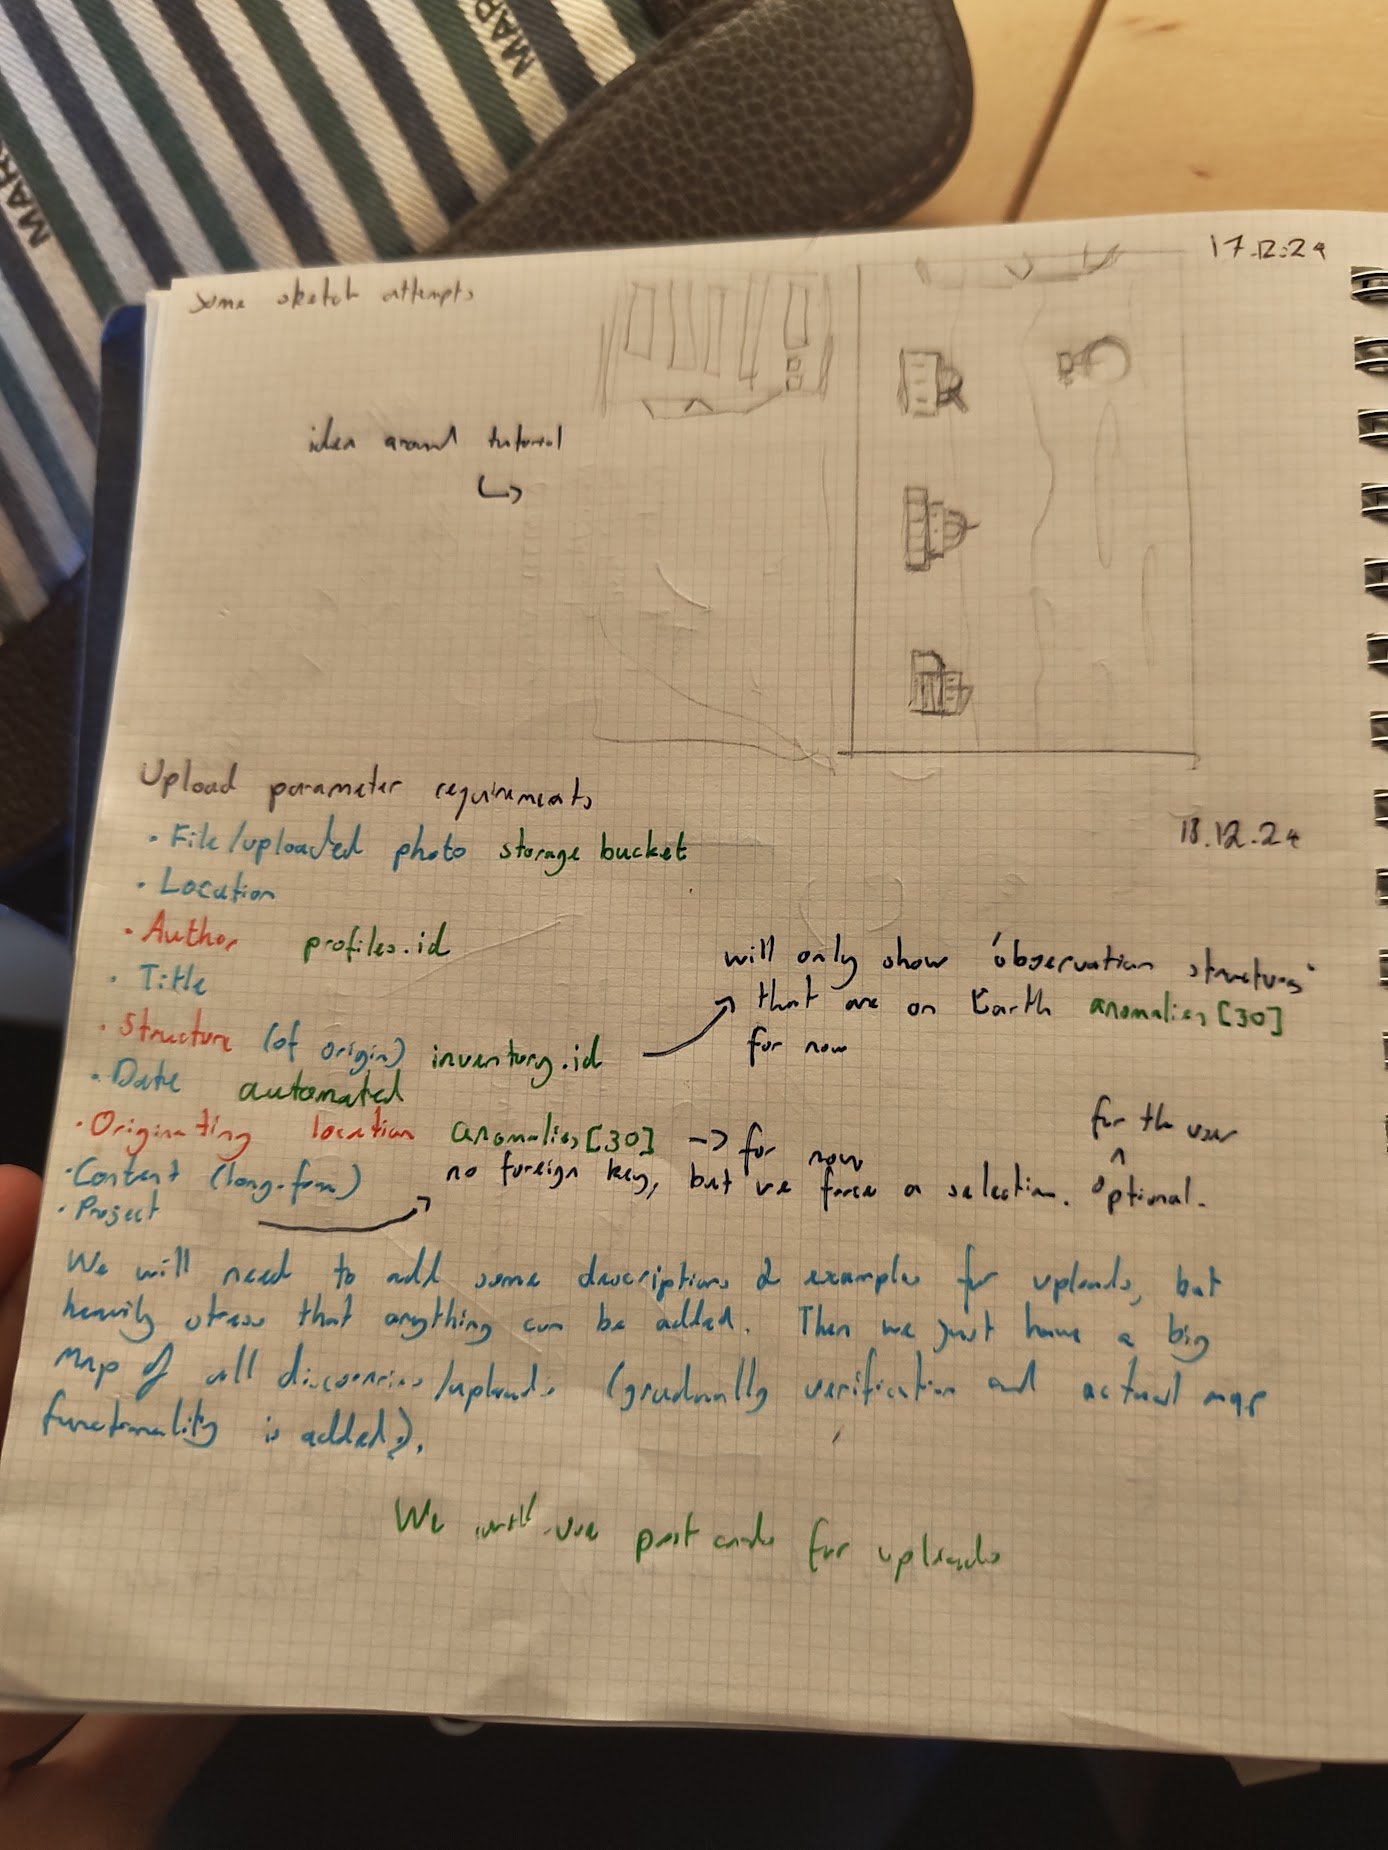 MAR
MAR
17.12.24
Some sketch attempts
idea around tutorial
Upload parameter requirements
18.12.24
• File/uploaded photo storage bucket
• Location
• Author profiles.id
• Title
• Structure (of origin) inventory.id
will only show 'observation structures'
that are on Earth anomalies[30]
for now
• Date automated
• Originating location anomalies[30] -> for now
• Content (long-form)
• Project
no foreign key, but we force a selection. Optional.
for the user
We will need to add some descriptions & examples for uploads, but
heavily stress that anything can be added. Then we just have a big
map of all discoveries/uploads (gradually verification and actual map
functionality is added).
We will use post cards for uploads